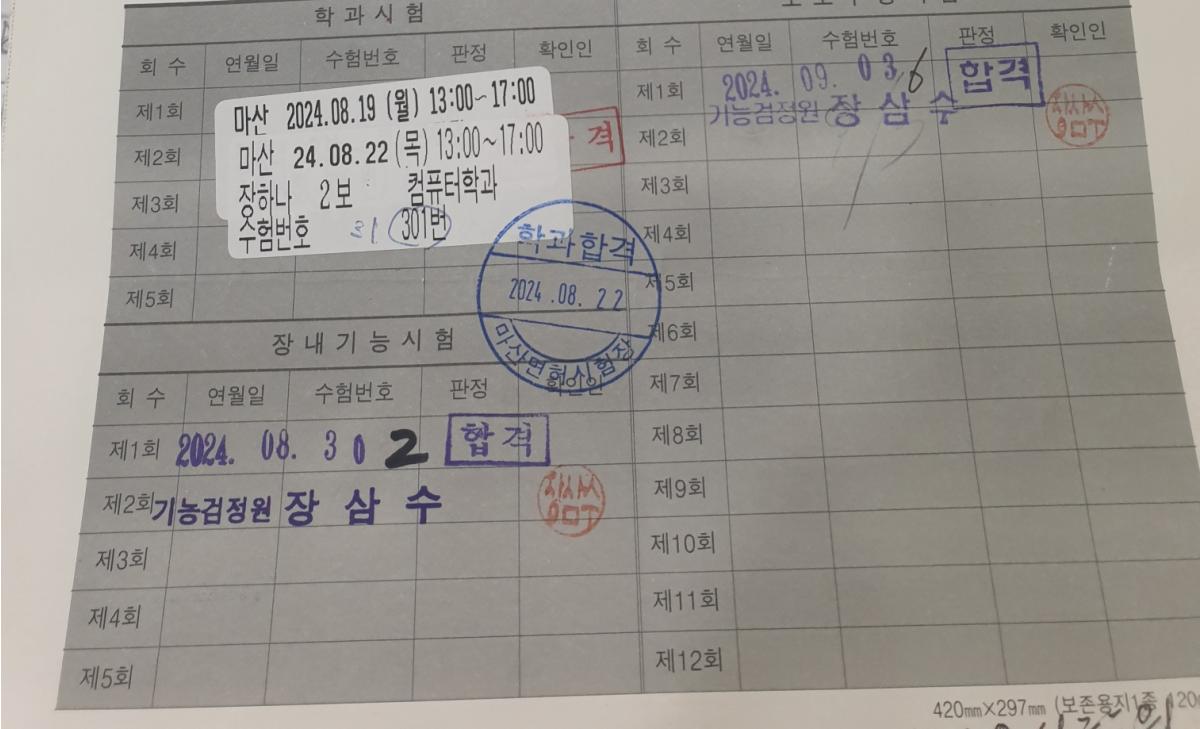 학과시험
회 수 연월일 수험번호 판정 확인인
제1회
마산 2024.08.19 (월) 13:00~17:00
제2회 격
마산 24.08.22 (목) 13:00~17:00
제3회
장하나 2보 컴퓨터학과
수험번호 31 301번
제4회
제5회
학과합격
2024.08.22
마산면허시험장
장내기능시험
회 수 연월일 수험번호 판정 확인인
제1회 2024. 08. 30 2 합격
제2회 기능검정원 장삼수
제3회
제4회
제5회
회 수 연월일 수험번호 판정 확인인
제1회 2024. 09. 03 6 합격
기능검정원 장삼수
제2회
제3회
제4회
제5회
제6회
제7회
제8회
제9회
제10회
제11회
제12회
420mm×297mm (보존용지1종 120